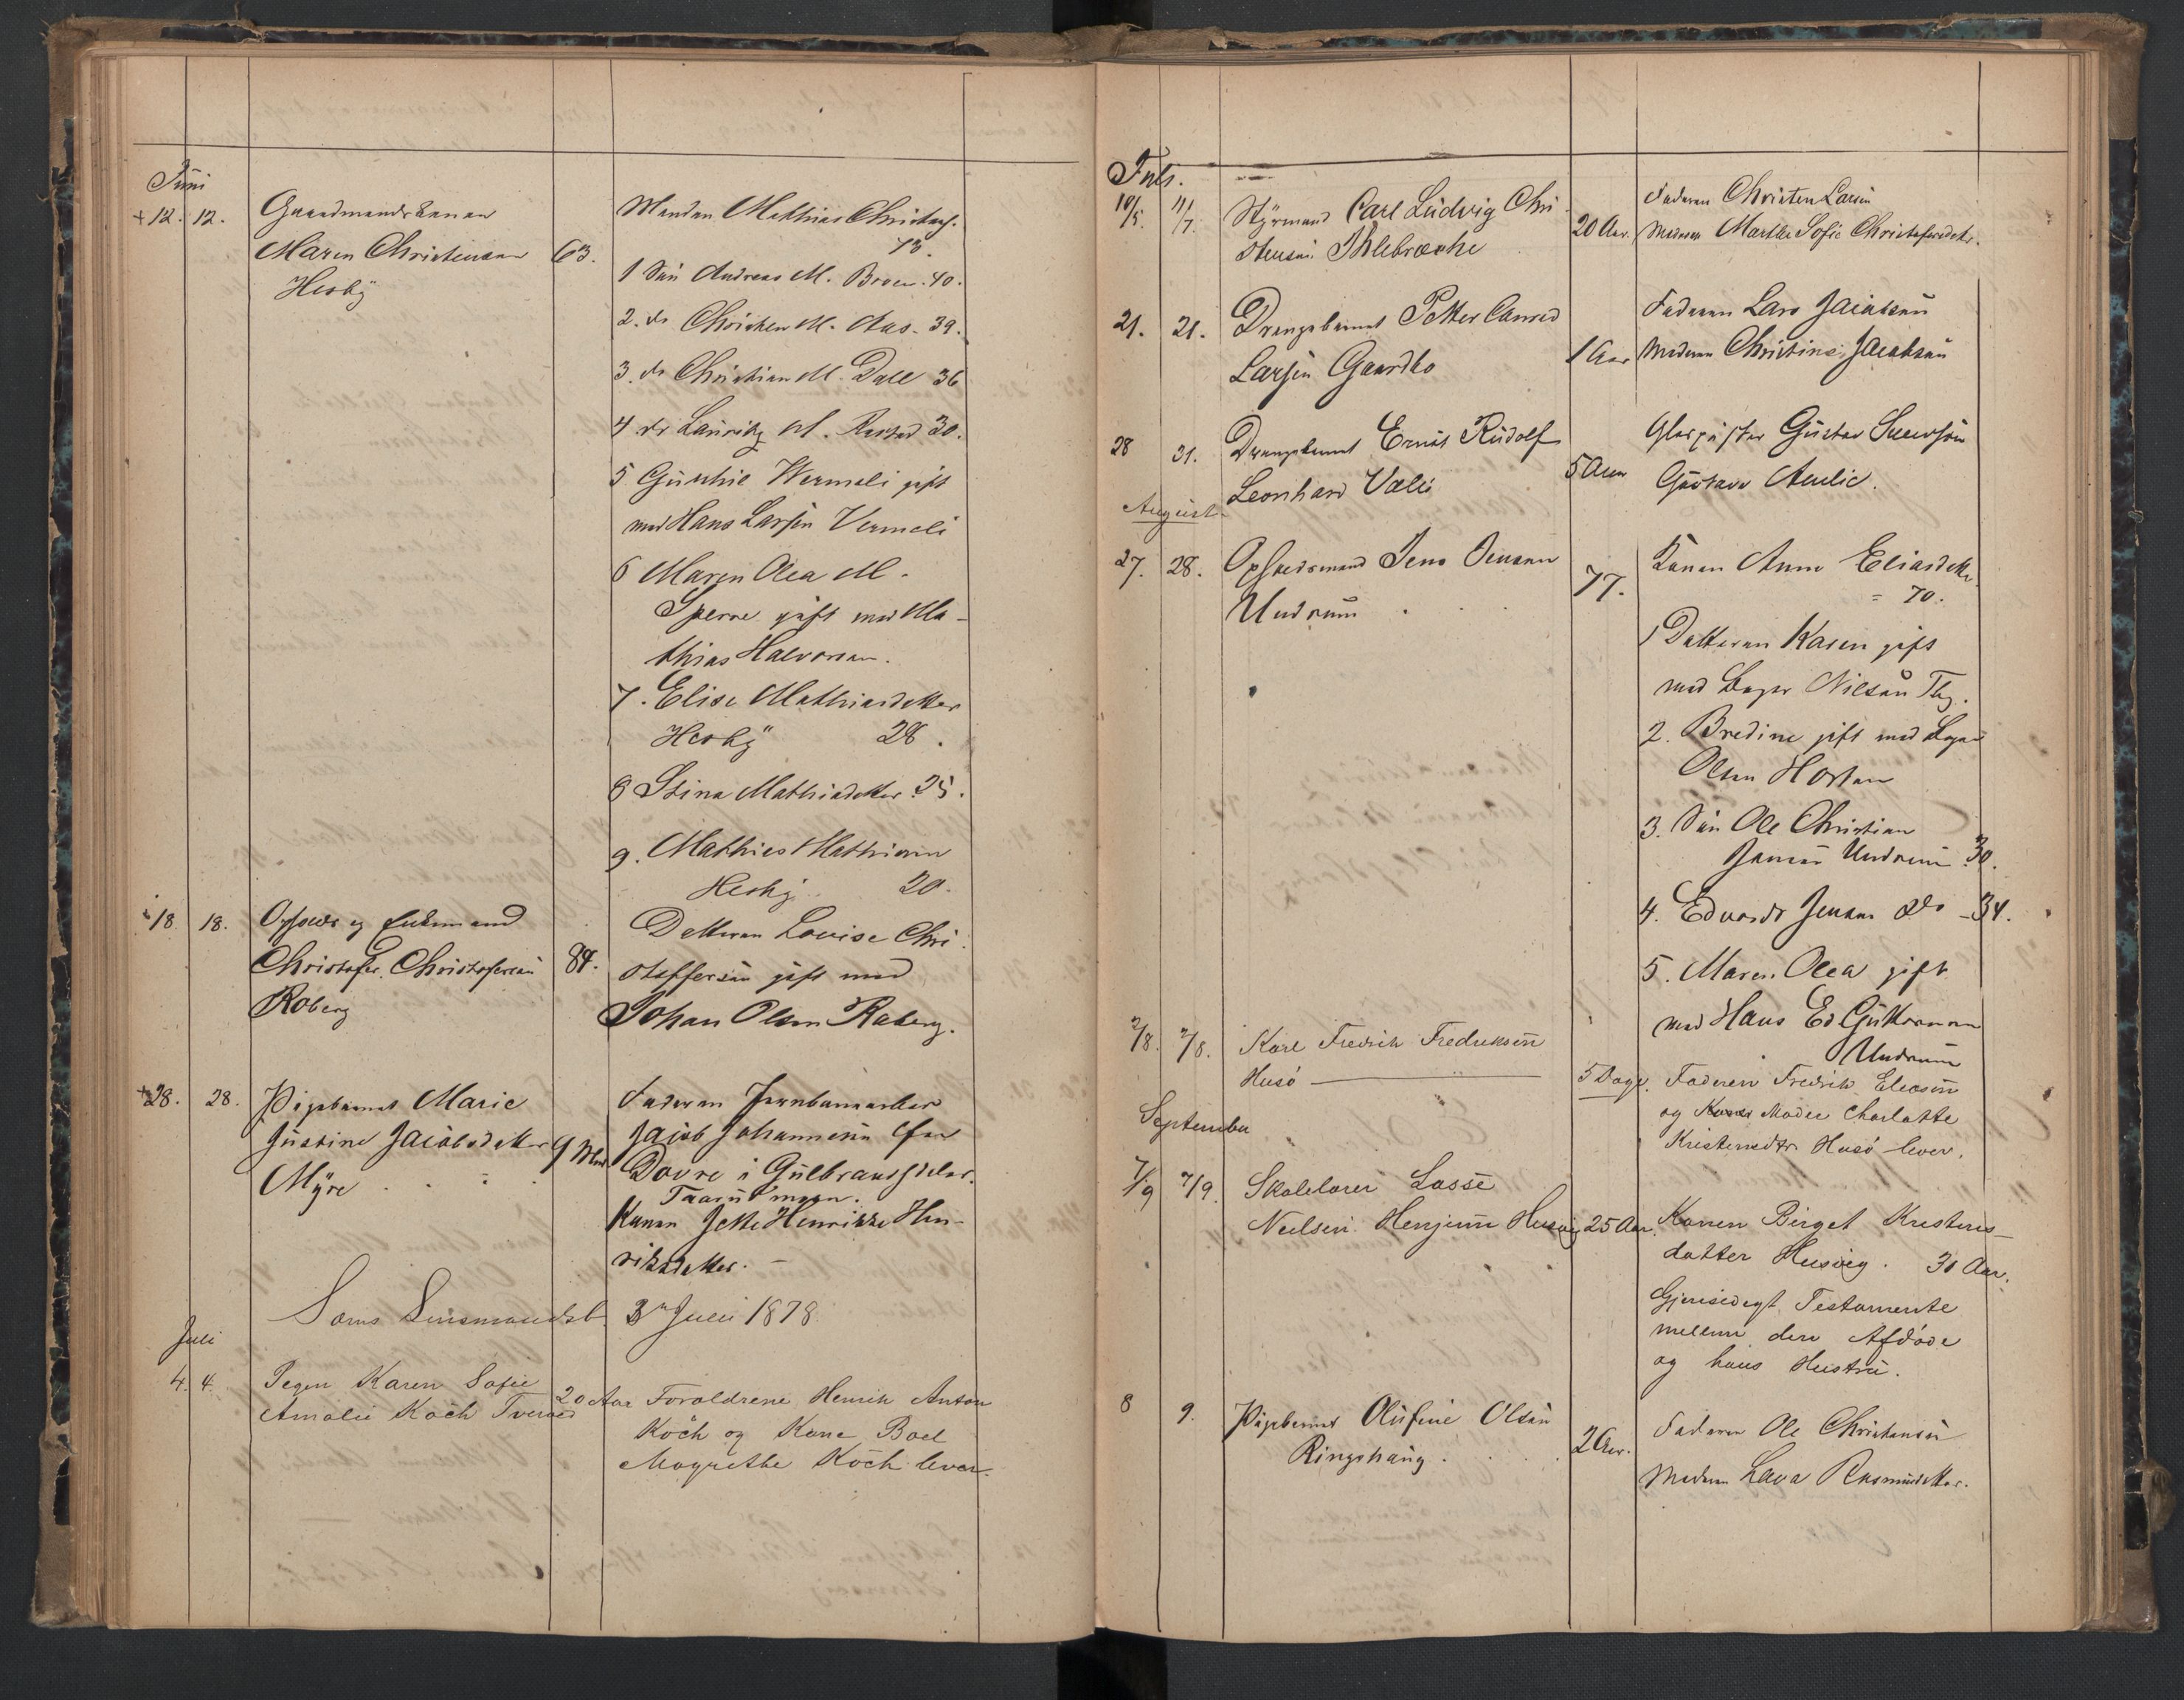 Juni
+12. 12. Gaardmandskonen Manden Mathias Christens.
Maren Christensen 63. 73.
Hesby 1 Søn Andreas M. Broen. 40.
2. do Christen M. Aas. 39.
3. do Christian M. Dall 36
4 do Lauritz M. Rastad 30.
5 Gunhil Wermeli gift
med Hans Larsen Vermeli
6 Maren Olea M.
Sperre gift med Ma-
thias Halvorsen.
7. Elise Mathiasdatter
Hesby 28.
8 Stina Mathiadatter 25.
9. Mathies Mathiasen
Hesby 20.
18 18. Opsidder og Enkemand Datteren Lovise Chri
Christofer Christofersen 84. stoffersen gift med
Roberg Johan Olsen Raberg.
+28. 28. Pigebarnet Marie Faderen Jernbanearbeider
Justine Jacobsdatter 9 Mdr Jacob Johannesen fra
Myre Dovre i Gulbrandsdalen.
Konen Jette Henrikke Hen-
riksdatter. -
Sems Lensmandsb 3 Juli 1878.
Juli
4. 4. Pigen Karen Sofie
Amalie Koch Tveraas 20 Aar Foraldrene Henrik Anton
Koch og Kone Boel
Magrethe Koch lever.
Juli.
10/5. 11/7. Styrmand Carl Ludvig Chri- 20 Aar. Faderen Christen Larsen
stensen Ihlebrække Moderen Marthe Sofie Christofersdatr.
21. 21. Drengebarnet Petter Conrad Faderen Lars Jacobsen
Larsen Gaardbo 1 Aar Moderen Christine Jacobsen
28 31. Drengebarnet Ernst Rudolf Glaspuster Gustav
Leonhard Vallø 5 Aar Gustava Amalie.
August
27. 28. Opsidermand Jens Jensen 77. Konen Anne Eliasdatter
Undrum = 70.
1 Datteren Karen gift
med Nilsen
2. Bredine gift med
Olsen
3. Søn Ole Christian
Jensen Undrum 30.
4. Edvard Jensen do - 34.
5. Maren Olea gift
med Hans Ed. Guttormsen
Undrum
2/8. 7/8. Karl Fredrik Fredriksen
Husø 5 Dage. Faderen Fredrik Eliasen
og Moder Charlotte
Kristensdtr Husø lever.
September
7/9 7/9. Skolelærer Lasse
Nielsen Henjum Husvig 25 Aar. Konen Birget Kristens-
datter Husvig. 30 Aar.
Gjensidigt Testamente
mellem den Afdøde
og hans Hustru.
8 9. Pigebarnet Olufine Olsen Faderen Ole Christensen
Ringshaug. 2 Aar. Moderen Lava Rasmusdatter.